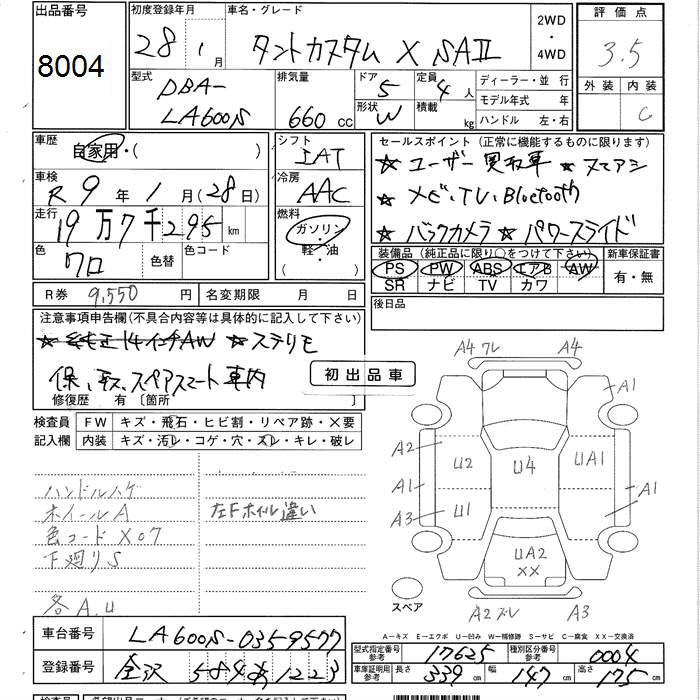 出品番号 初度登録年月 車名・グレード 2WD・4WD 評価点
8004 28年1月 タントカスタム X SAII 3.5
型式 排気量 ドア 定員 ディーラー・並行 外装 内装
DBA- 5 4人 モデル年式 年 C
LA600S 660cc 形状 W 積載 kg ハンドル 左・右
車歴 シフト セールスポイント(正常に機能するものに限ります)
自家用・( ) IAT ☆ユーザー買取車 ☆スマアシ
車検 冷房 ☆ナビ、TV、Bluetooth
R9年1月(28日) AAC ☆バックカメラ ☆パワースライド
走行 燃料 装備品(純正品に限り○をつけて下さい) 新車保証書
19万7千295km ガソリン・軽油 PS PW ABS エアB AW 有・無
色 クロ 色替 色コード SR ナビ TV カワ
R券 9,550円 名変期限 月 日 後日品
注意事項申告欄(不具合内容等は具体的に記入して下さい)
☆純正14インチAW ☆ステリモ
保、取、スペアスマート車内
修復歴 有〔箇所 〕 初出品車
検査員 FW キズ・飛石・ヒビ割・リペア跡・X要
記入欄 内装 キズ・汚レ・コゲ・穴・スレ・キレ・破レ
A4 ワレ A4
A1
A2 U2 U4 UA1
A1 A1
A3 U1
UA2
XX
スペア A2 ズレ A3
ハンドルハゲ
ホイールA 左Fホイル違い
色コードX07
下廻りS
各A.U
A-キズ E-エクボ U-凹み W-補修跡 S-サビ C-腐食 XX-交換済
車台番号 LA600S-0359577 型式指定番号 参考 17625 種別区分番号 参考 0004
登録番号 金沢 584 あ 1223 車庫証明用 参考 長さ 339cm 幅 147cm 高さ 175cm